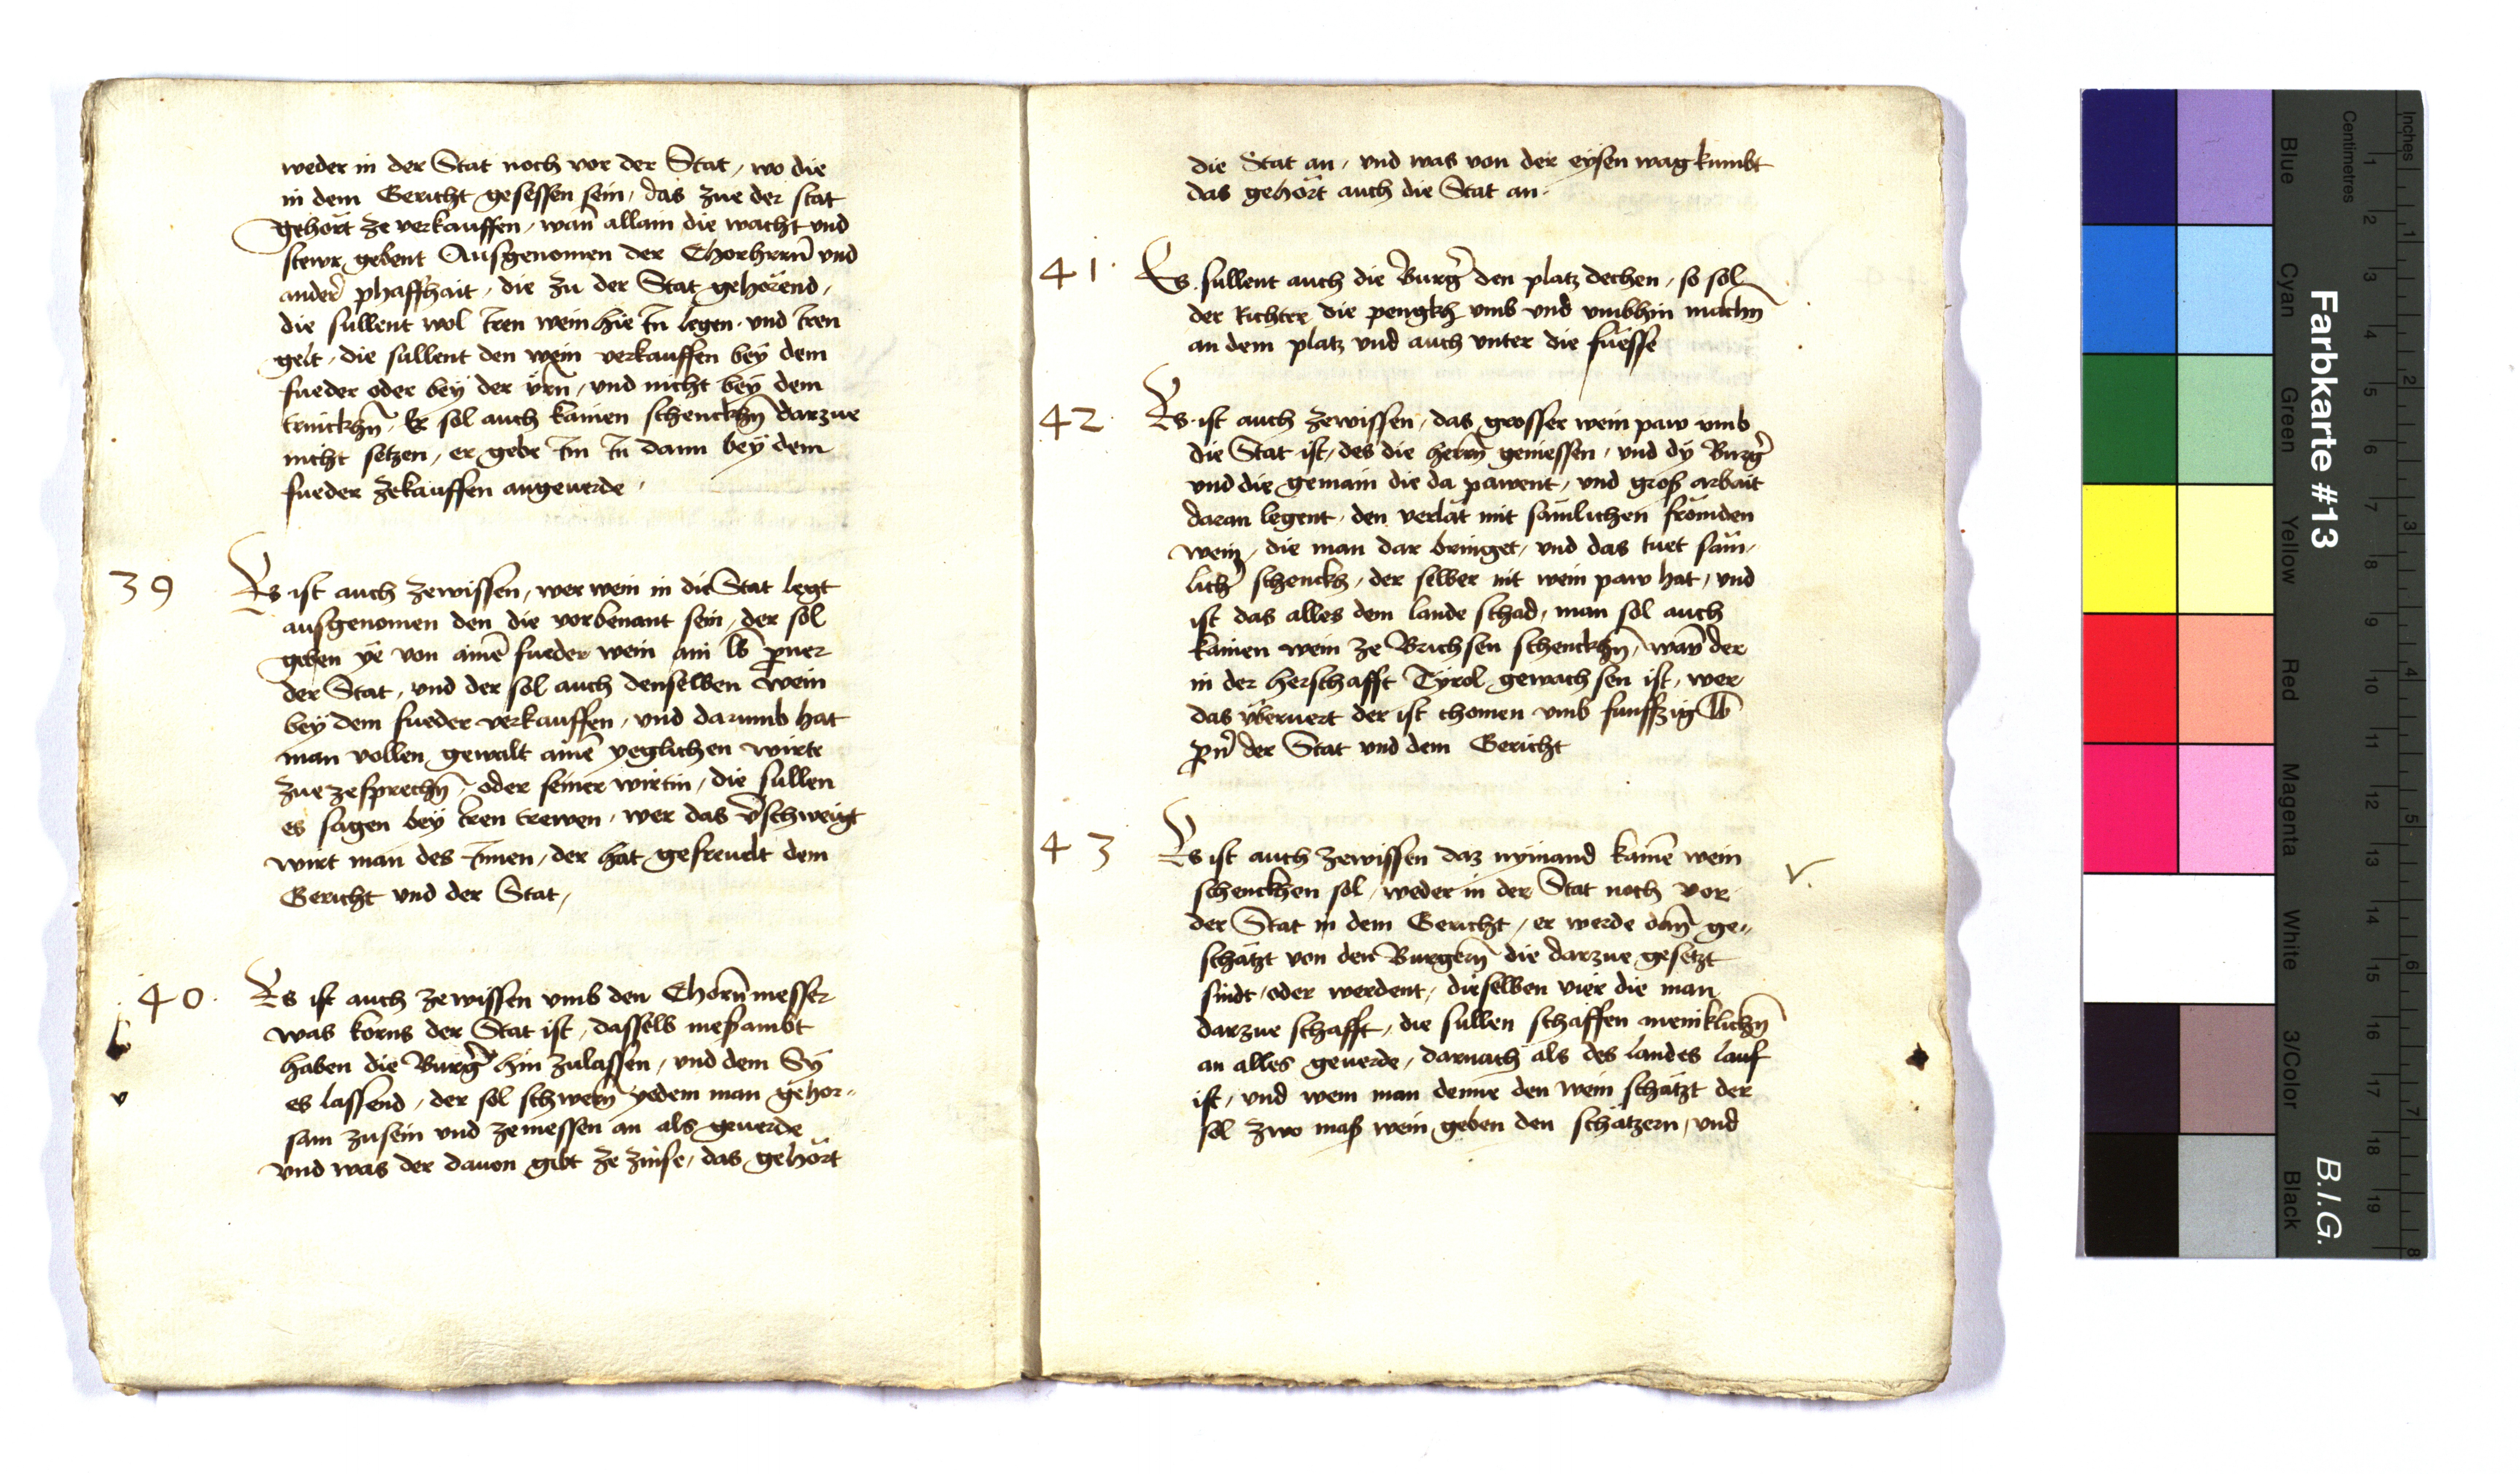 weder in der Stat noch vor der Stat, wo die
in dem Gericht gesessen sein, das zue der stat
gehört ze verkauffen, wan̄ allain die wacht und
stewr gebent Ausgenomen der Chorhern̄ und
ander phaffhait, die zu der Stat gehörend,
die sullent wol iren wein hie in legen, und iren
gelt, die sullent den wein verkauffen bey dem
fueder oder bey der ÿrn, und nicht bey dem
trinckhn̄, Er sol auch kainen schenckhn̄ darzue
nicht setzen, er gebe im in dann bey dem
fueder zekauffen angeuerde,
39 Es ist auch zewissen, wer wein in die Stat legt
ausgenomen den die vorbenant sein, der sol
geben ye von ainē fueder wein ain lb perner
der Stat, und der sol auch denselben wein
bey dem fueder verkauffen, und darumb hat
man vollen gewalt ainē yeglichen wirte
zue zesprechn̄, oder seiner wirtin, die sullen
es sagen bey iren trewen, wer das v̄schweigt
wirt man des innen, der hat gefreuelt dem
Gericht und der Stat,
40. Es ist auch zewissen vmb den Chorn̄messer
was korns der Stat ist, dasselb mesambt
haben die Burḡ hin zulassen, und dem Sy
es lassend, der sol schwern̄ yedem man gehor„
sam zusein und zemessen an als geuerde
v
und was der dauon gibt ze zinse, das gehört
die Stat an, und was von der eysen wag kumbt
das gehört auch die Stat an.
41. Es sullent auch die Burḡ den platz dechen, so sol
der Richter die pengkh vmb und vmbhin machn̄
an dem platz und auch unter die füesse
42 Es ist auch zewissen, das grosser wein paw vmb
die Stat ist, des die herrn̄ geniessen, und dy Burḡ
und die gemain die da pawent, und gros arbait
daran legent, den verlät mit sämlichen frömden
wein, die man dar bringet, und das tuet säm,
lich̄ schenckh, der selber nit wein paw hat, und
ist das alles dem lande schad, man sol auch
kainen wein ze Brichsen schenckhn̄, wan̄ der
in der herschafft Tyrol gewachsen ist, wer
das überuert der ist chomen vmb funffzig lb
pn̄ der Stat und dem Gericht
43 Es ist auch zewissen daz nyimand kainē wein
schenckhen sol, weder in der Stat noch vor
der Stat in dem Gericht, er werde dan̄ ge„
schätzt von den Burgern̄ die darzue gesetzt
sindt, oder werdent, dieselben vier die man
darzue schafft, die sullen schaffen menklichn̄
an alles geuerde, darnach als des landes lauf
ist, und wem man denne den wein schätzt der
sol zwo mas wein geben den schätzern, und
v.
Farbkarte #13
B.I.G.
Blue Cyan Green Yellow Red Magenta White 3/Color Black
Centimetres 1 2 3 4 5 6 7 8 9 10 11 12 13 14 15 16 17 18 19
Inches 1 2 3 4 5 6 7 8